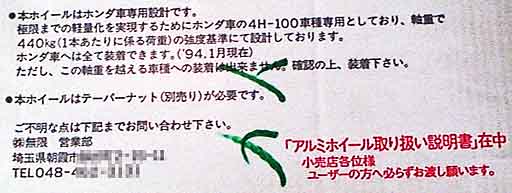 ●本ホイールはホンダ車専用設計です。
極限までの軽量化を実現するためにホンダ車の4H-100車種専用としており、軸重で
440kg(1本あたりに係る荷重)の強度基準にて設計しております。
ホンダ車へは全て装着できます。('94,1月現在)
ただし、この軸重を越える車種への装着は出来ません。確認の上、装着下さい。
●本ホイールはテーパーナット(別売り)が必要です。
ご不明な点は下記までお問い合わせ下さい。
㈱無限 営業部
埼玉県朝霞市
TEL048-4
「アルミホイール取り扱い説明書」在中
小売店各位様
ユーザーの方へ必らずお渡し願います。